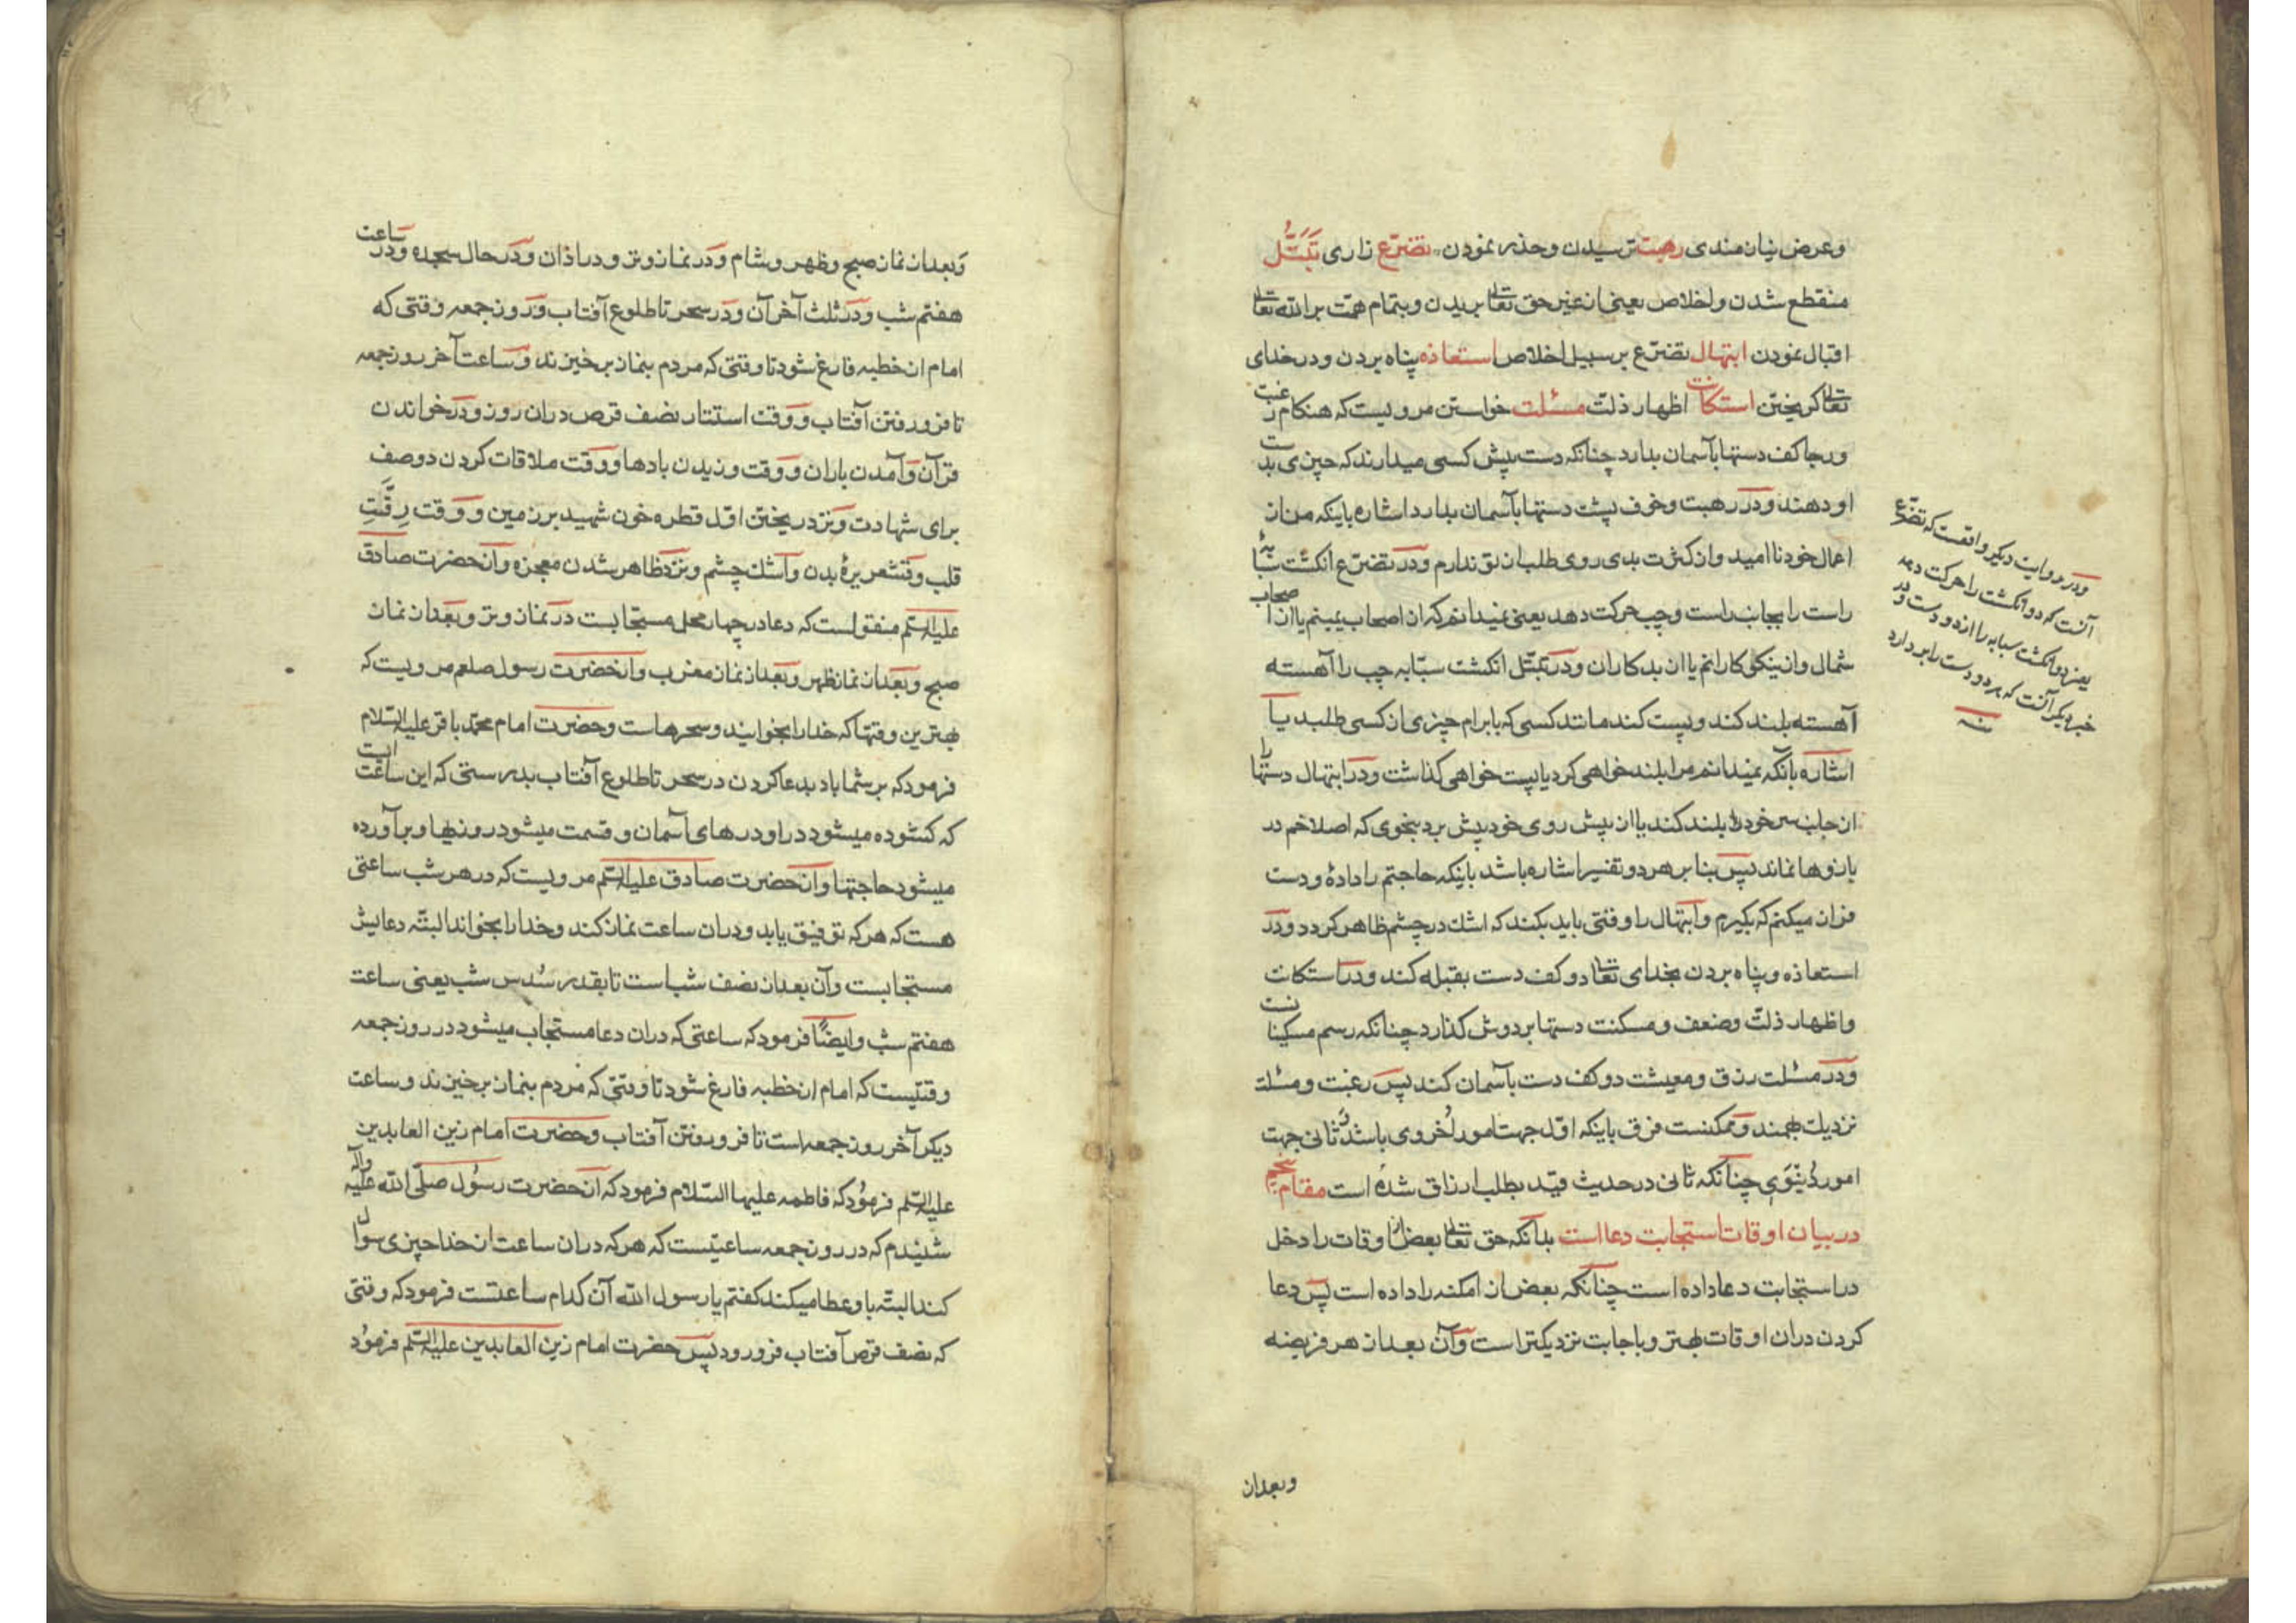 وعرض نیازمندی رهبت ترسیدن وحذر نمودن تضرّع زاری تَبَتُّل
منقطع شدن واخلاص یعنی از غیر حق تعالی بریدن وبتمام همّت بر الله تعالی
اقبال نمودن ابتهال تضرّع بر سبیل اخلاص استعاذه پناه بردن ودر خدای
تعالی کریختن استکانت اظهار ذلّت مسئلت خواستن مرویست که هنکام رغبت
ورجا کف دستها بآسمان بدارد چنانکه دست پیش کسی میدارند که چیزی بدست
او دهند ودر رهبت وخوف پشت دستها بآسمان بدارد اشاره باینکه من از
اعمال خود ناامید واز کثرت بدی روی طلب از تو ندارم ودر تضرّع انکشت سبّابهٔ
راست را بجانب راست وچپ حرکت دهد یعنی نمیدانم که از اصحاب یمینم یا از اصحاب
شمال واز نیکوکارانم یا از بدکاران ودر تبتّل انکشت سبّابه چپ را آهسته
آهسته بلند کند وپست کند مانند کسی که بابرام چیزی از کسی طلبد یا
اشاره بآنکه نمیدانم مرا بلند خواهی کرد یا پست خواهی کذاشت ودر ابتهال دستها را
از جانب سر خود بلند کند یا از پیش روی خود پیش برد بنحوی که اصلا خم در
بازوها نماند پس بنا بر هر دو تفسیر اشاره باشد باینکه حاجتم را دادهٔ ودست
فراز میکنم که بکیرم وابتهال را وقتی باید بکند که اشك در چشم ظاهر کردد ودر
استعاذه وپناه بردن بخدای تعالی دو کف دست بقبله کند ودر استکانت
واظهار ذلّت وضعف ومسکنت دستها بر دوش کذارد چنانکه رسم مسکینانست
ودر مسئلت رزق ومعیشت دو کف دست بآسمان کند پس رغبت ومسئلت
نزدیك بهمند وممکنست فرق باینکه اوّل جهت امور اُخروی باشد وثانی جهت
امور دُنیَوی چنانکه ثانی در حدیث قید بطلب ارزاق شده است مقام
در بیان اوقات استجابت دعا است بدانکه حق تعالی بعض از اوقات را دخل
در استجابت دعا داده است چنانکه بعض از امکنه را داده است پس دعا
کردن در ان اوقات بهتر وباجابت نزدیکتر است وآن بعد از هر فریضه
وبعد از
ودر روایت دیکر واقعست که تضرّع
آنست که دو انکشت را حرکت دهد
یعنی دو انکشت سبابه را از دو دست ودر
خبر دیکر آنست که هر دو دست را بر دارد
منه
وبعد از نماز صبح وظهر وشام ودر نماز وتر ودر اذان ودر حال سجده ودر ساعت
هفتم شب ودر ثلث آخر آن ودر سحر تا طلوع آفتاب ودر روز جمعه وقتی که
امام از خطبه فارغ شود تا وقتی که مردم بنماز برخیزند وساعت آخر روز جمعه
تا فرو رفتن آفتاب ووقت استتار نصف قرص در ان روز ودر خواندن
قرآن وآمدن باران ووقت وزیدن بادها ووقت ملاقات کردن دو صف
برای شهادت ونزد ریختن اوّل قطره خون شهید بر زمین ووقت رِقَّتِ
قلب وقشعریرهٔ بدن واشك چشم ونزد ظاهر شدن معجزه واز حضرت صادق
علیه السّلم منقول است که دعا در چهار محل مستجابست در نماز وتر وبعد از نماز
صبح وبعد از نماز ظهر وبعد از نماز مغرب واز حضرت رسول صلعم مرویست که
بهترین وقتها که خدا را بخوانید وسحرهاست وحضرت امام محمّد باقر علیه السّلام
فرمود که بر شما باد بدعا کردن در سحر تا طلوع آفتاب بدرستی که این ساعت است
که کشوده میشود در او درهای آسمان وقسمت میشود روزیها وبر آورده
میشود حاجتها واز حضرت صادق علیه السّلم مرویست که در هر شب ساعتی
هست که هر که توفیق یابد ودر ان ساعت نماز کند وخدا را بخواند البتّه دعایش
مستجابست وآن بعد از نصف شب است تا بقدر سُدس شب یعنی ساعت
هفتم شب وایضًا فرمود که ساعتی که در ان دعا مستجاب میشود در روز جمعه
وقتیست که امام از خطبه فارغ شود تا وقتی که مردم بنماز برخیزند وساعت
دیکر آخر روز جمعه است تا فرو رفتن آفتاب وحضرت امام زین العابدین
علیه السّلم فرمود که فاطمه علیها السّلام فرمود که از حضرت رسُول صلّی الله علیه وآله
شنیدم که در روز جمعه ساعتیست که هر که در ان ساعت از خدا چیزی سوال
کند البتّه باو عطا میکند کفتم یا رسول الله آن کدام ساعتست فرمود که وقتی
که نصف قرص آفتاب فرو رود پس حضرت امام زین العابدین علیه السّلم فرمُود